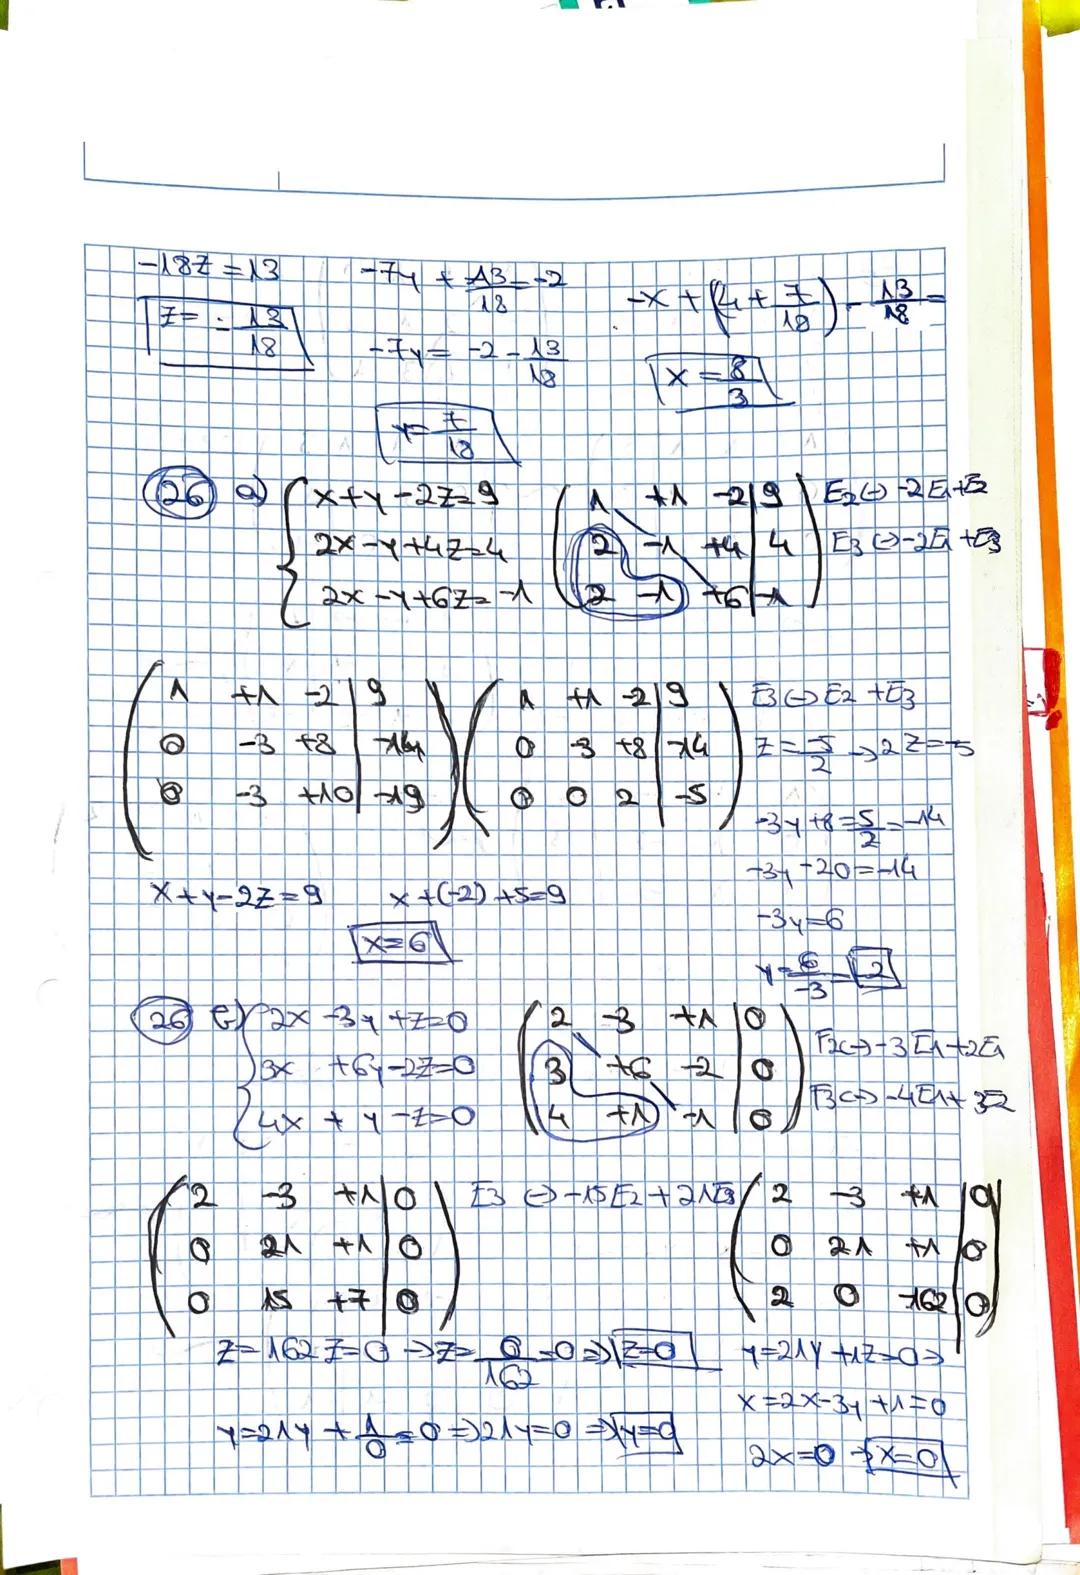 -18z = 13
z = -13/18
-7y + 13/18 = -2
-7y = -2 - 13/18
y = 7/18
-x + (4 + 7/18) - 13/18 =
x = 8/3
26 a) { x+y-2z=9
2x-y+4z=4
2x-y+6z=-1
( 1 +1 -2 | 9 ) E2 ↔ -2E1+E2
( 2 -1 +4 | 4 ) E3 ↔ -2E1+E3
( 2 -1 +6 | -1 )
( 1 +1 -2 | 9 )
( 0 -3 +8 | -14 )
( 0 -3 +10 | -19 )
( 1 +1 -2 | 9 ) E3 ↔ E2 +E3
( 0 -3 +8 | -14 )
( 0 0 2 | -5 )
z = -5/2 → 2z=-5
-3y+8=5/2=-14
-3y-20=-14
-3y=6
y = 6/-3 = -2
x+y-2z=9
x+(-2)+5=9
x=6
26 { 2x-3y+z=0
3x +6y-2z=0
4x + y -z=0
( 2 -3 +1 | 0 )
( 3 +6 -2 | 0 )
( 4 +1 -1 | 0 )
( 2 -3 +1 | 0 )
( 0 21 +1 | 0 )
( 0 15 +7 | 0 )
E3 ↔ -15E2 + 21E3
( 2 -3 +1 | 0 )
( 0 21 +1 | 0 )
( 2 0 -162 | 0 )
z=162z=0 → z= 0/162 =0 ⇒ z=0
y=21y +1z=0 ⇒
y=21y + 1/0 = 0 ⇒ 21y=0 ⇒ y=0
x=2x-3y+1=0
2x=0 → x=0